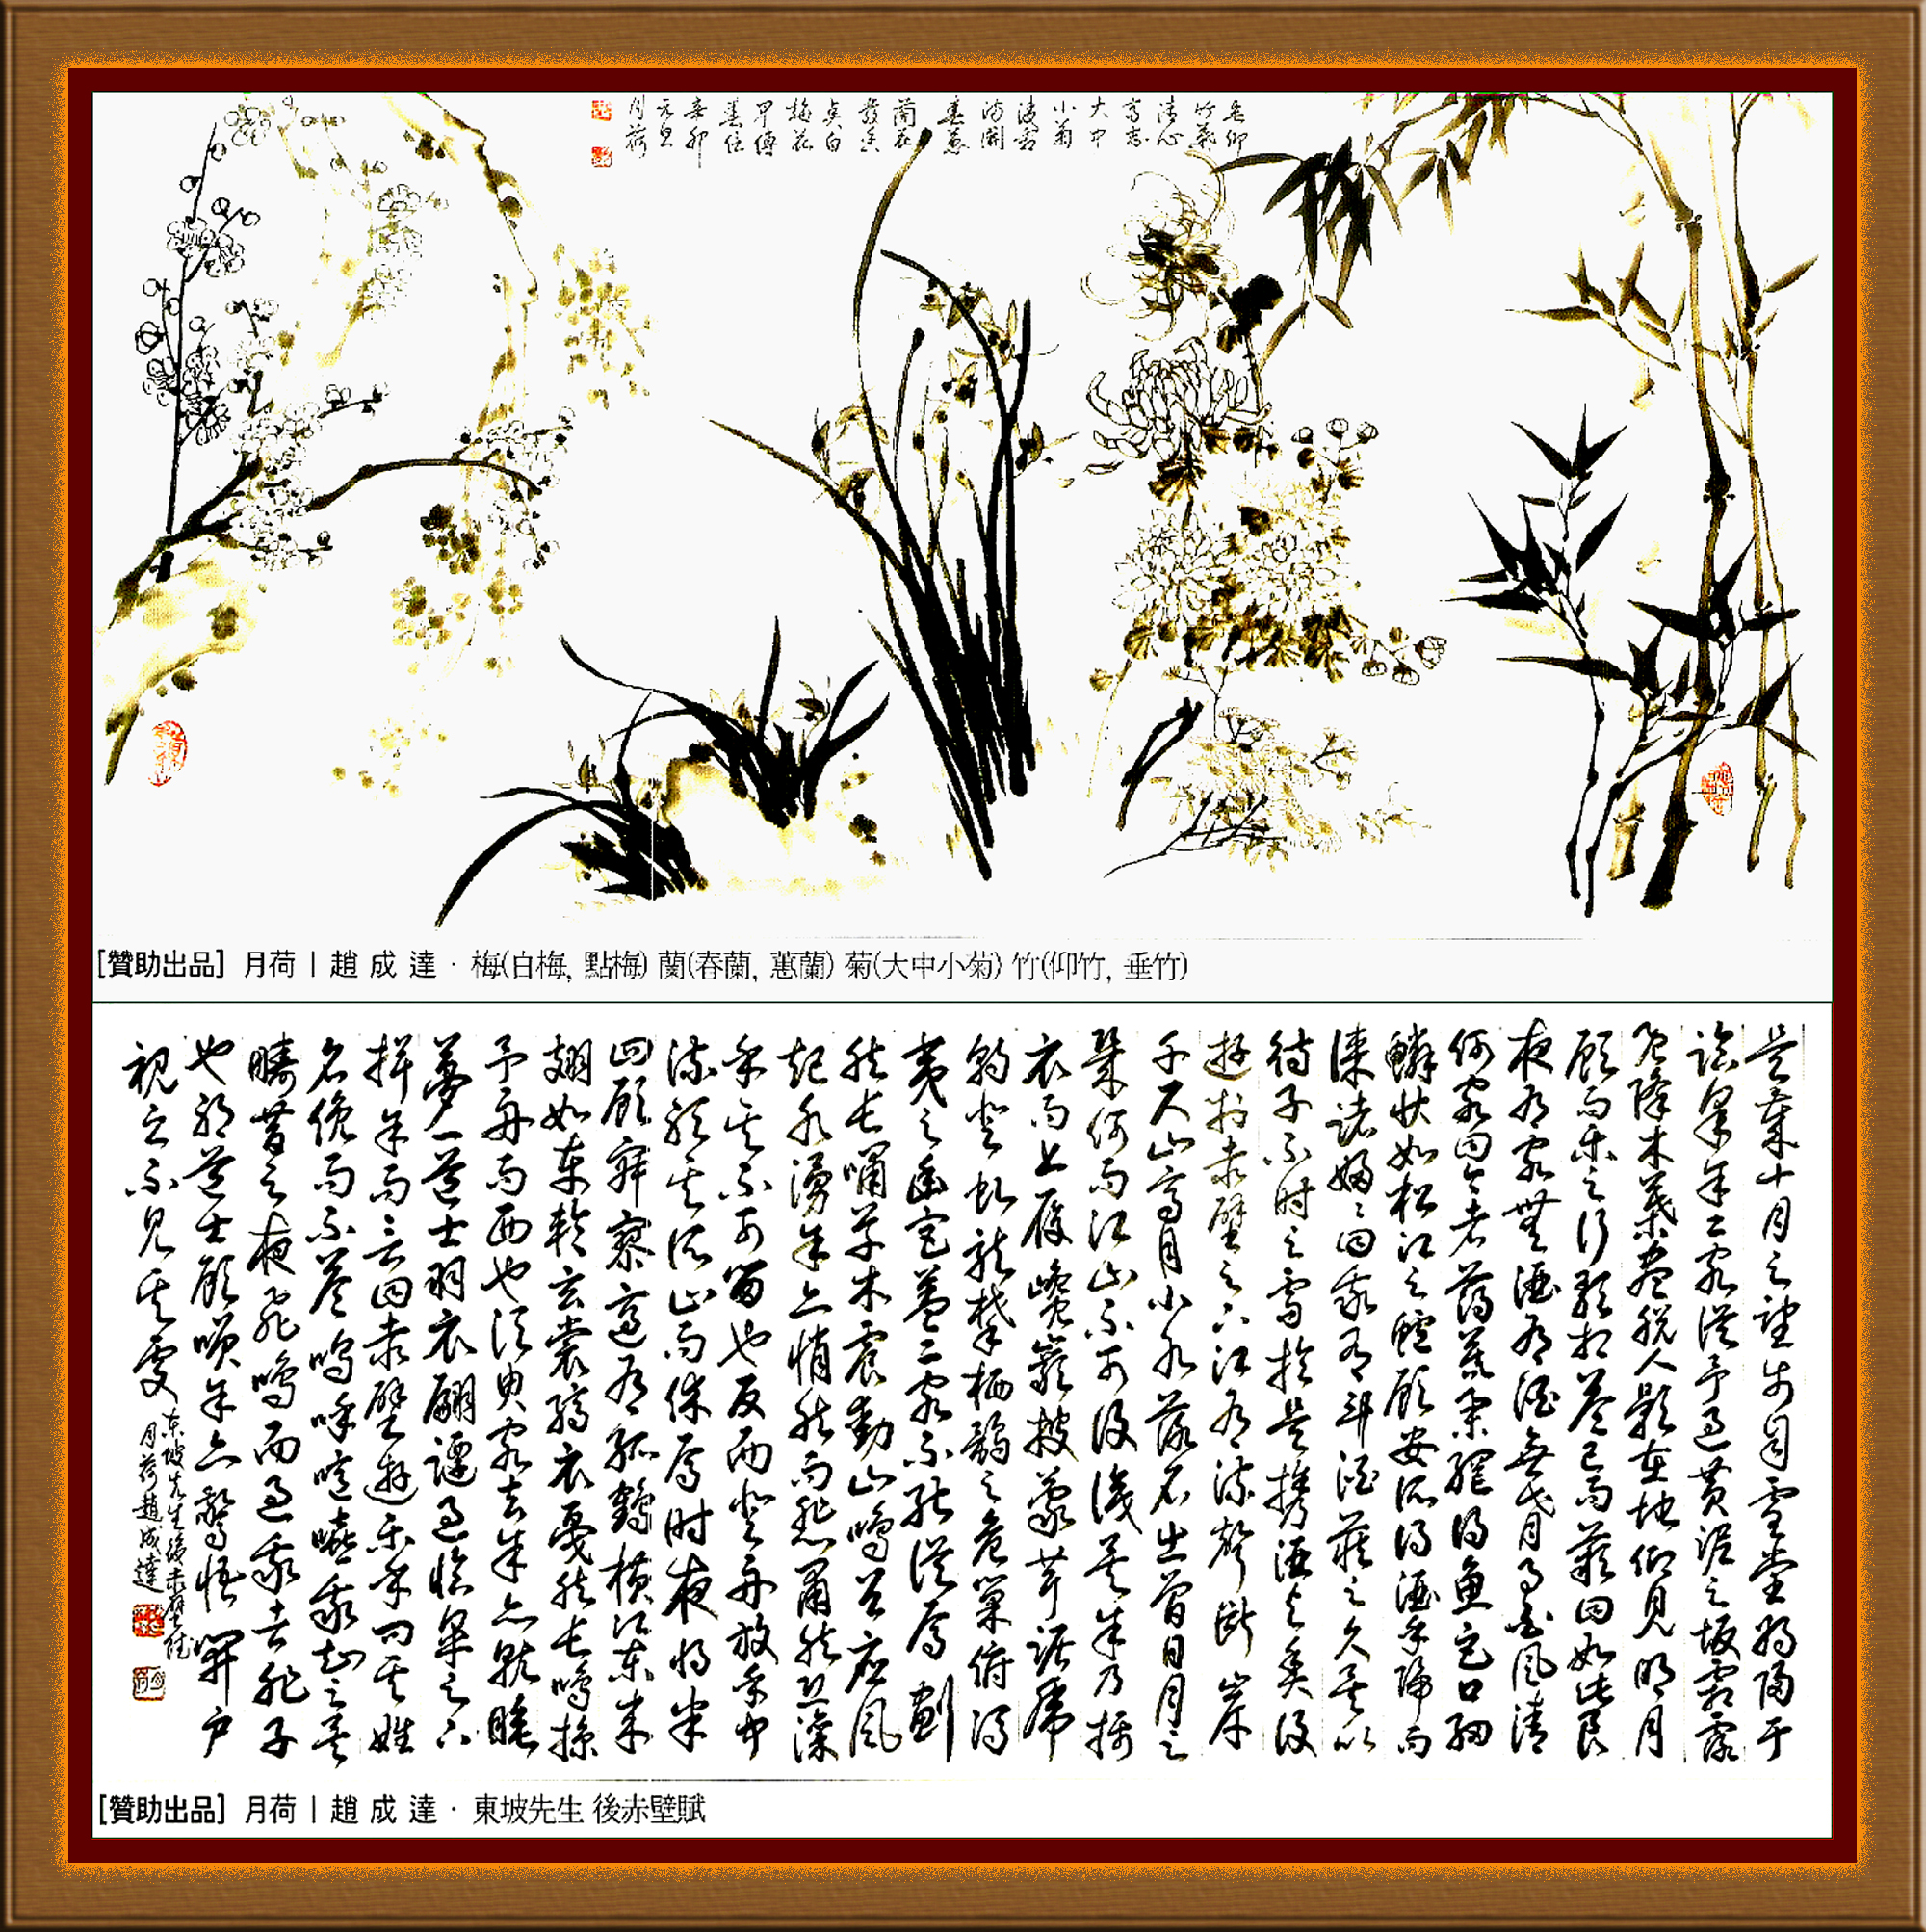 垂仰
竹葉
清心
高志
大中
小菊
凌雪
滿開
春蕙
蘭花
發香
点白
梅花
早傳
春信
辛卯
元旦
月荷
[贊助出品] 月荷 | 趙 成 達 · 梅(白梅, 點梅) 蘭(春蘭, 蕙蘭) 菊(大中小菊) 竹(仰竹, 垂竹)
是歲十月之望步自雪堂將歸于
臨皋亭二客從予過黃泥之坂霜露
既降木葉盡脫人影在地仰見明月
顧而樂之行歌相答已而歎曰如此良
夜有客無酒有酒無肴月白風清
何客曰今者薄暮舉網得魚巨口細
鱗狀如松江之鱸顧安所得酒乎歸而
謀諸婦婦曰我有斗酒藏之久矣以
待子不時之需於是攜酒與魚復
遊於赤壁之下江有流聲斷岸
千尺山高月小水落石出曾日月之
幾何而江山不可復識矣予乃攝
衣而上履巉巖披蒙茸踞虎
豹登虬龍攀栖鶻之危巢俯馮
夷之幽宮蓋二客不能從焉劃
然長嘯草木震動山鳴谷應風
起水湧予亦悄然而悲肅然恐凜
乎其不可留也反而登舟放乎中
流聽其所止而休焉時夜將半
四顧寂寥適有孤鶴橫江東來
翅如車輪玄裳縞衣戛然長鳴掠
予舟而西也須臾客去予亦就睡
夢一道士羽衣翩躚過臨皋之下
揖予而言曰赤壁遊樂乎問其姓
名俛而不答嗚呼噫嘻我知之矣
疇昔之夜飛鳴而過我者非子
也耶道士顧笑予亦驚悟開戶
視之不見其處
東坡先生後赤壁賦
月荷趙成達
[贊助出品] 月荷 | 趙 成 達 · 東坡先生 後赤壁賦